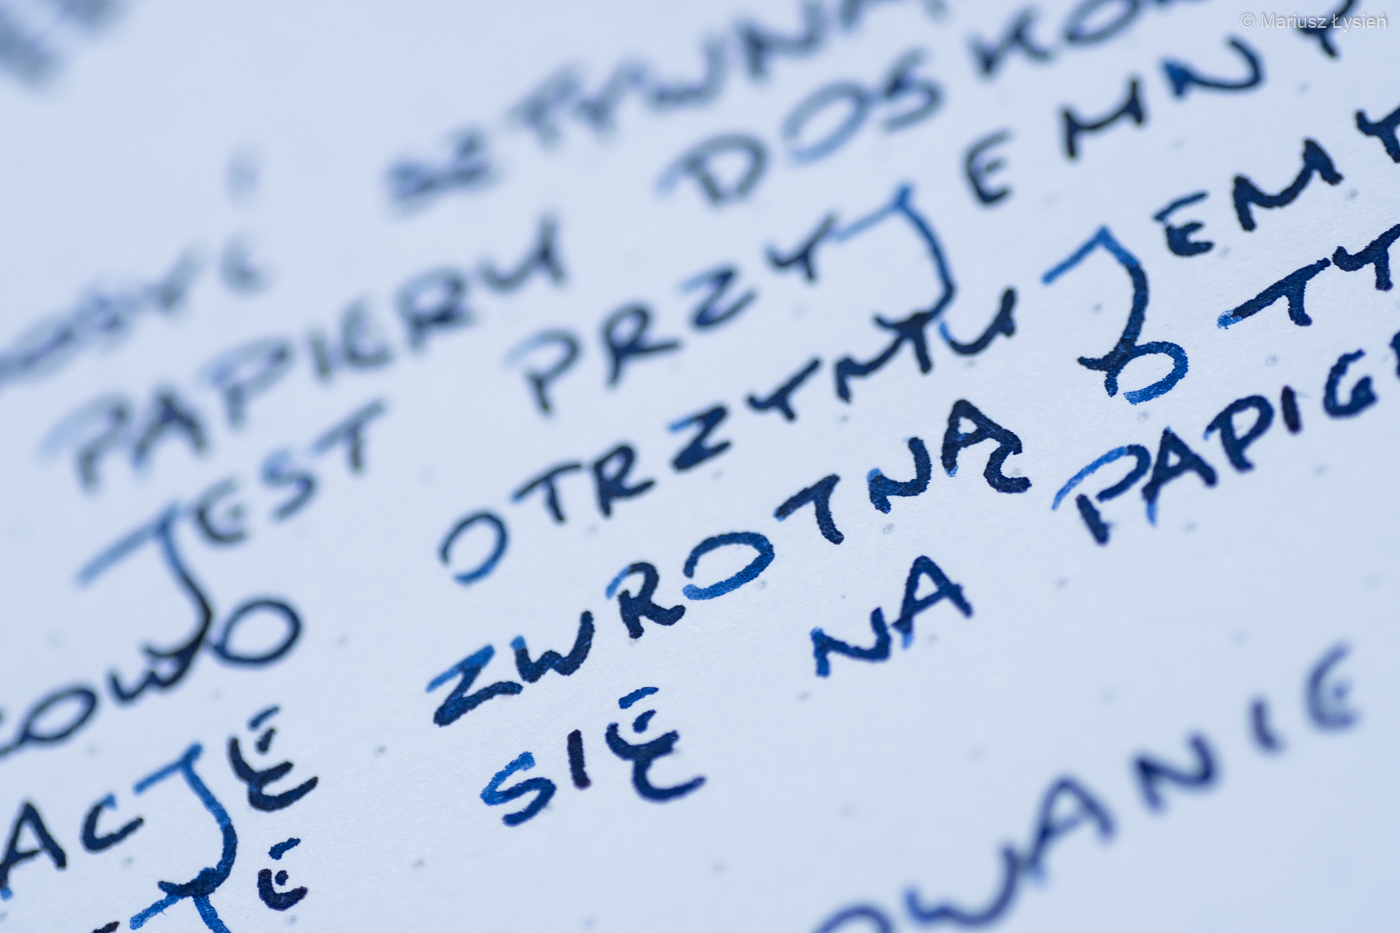 © Mariusz Łysień
SZTYWNA
PAPIERU DOSKO
JEST PRZYJEMNY
KOWO OTRZYMUJEMY
ACJĘ ZWROTNĄ O TY
JE SIĘ NA PAPIE
OWANIE